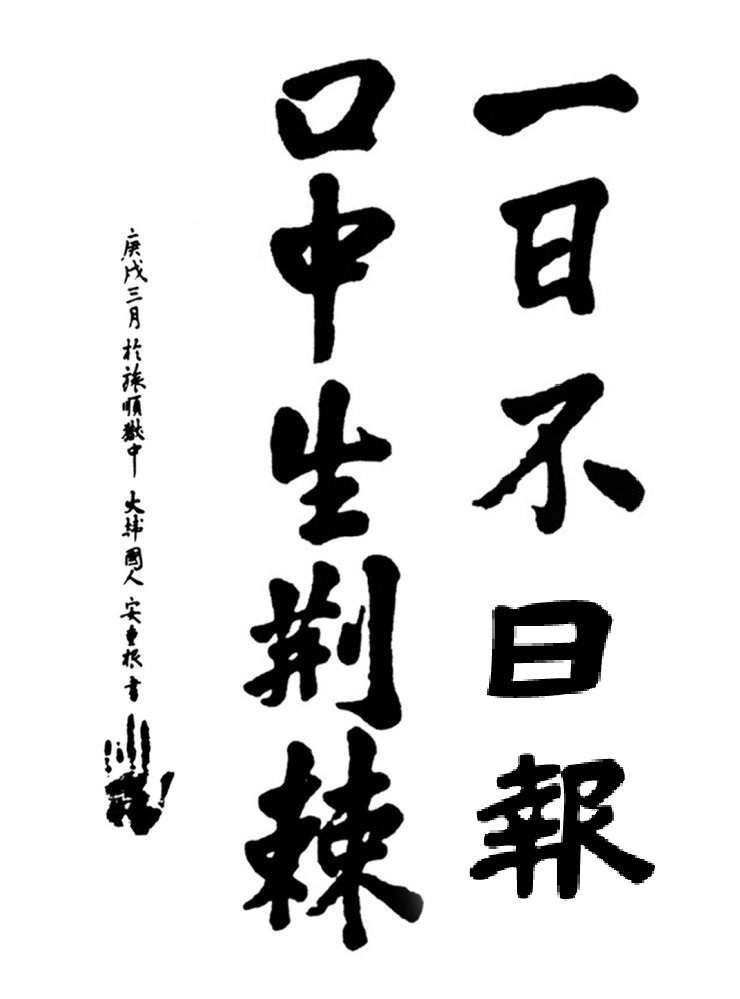 一日不日報
口中生荆棘
庚戌三月 於旅順獄中 大韓國人 安重根書